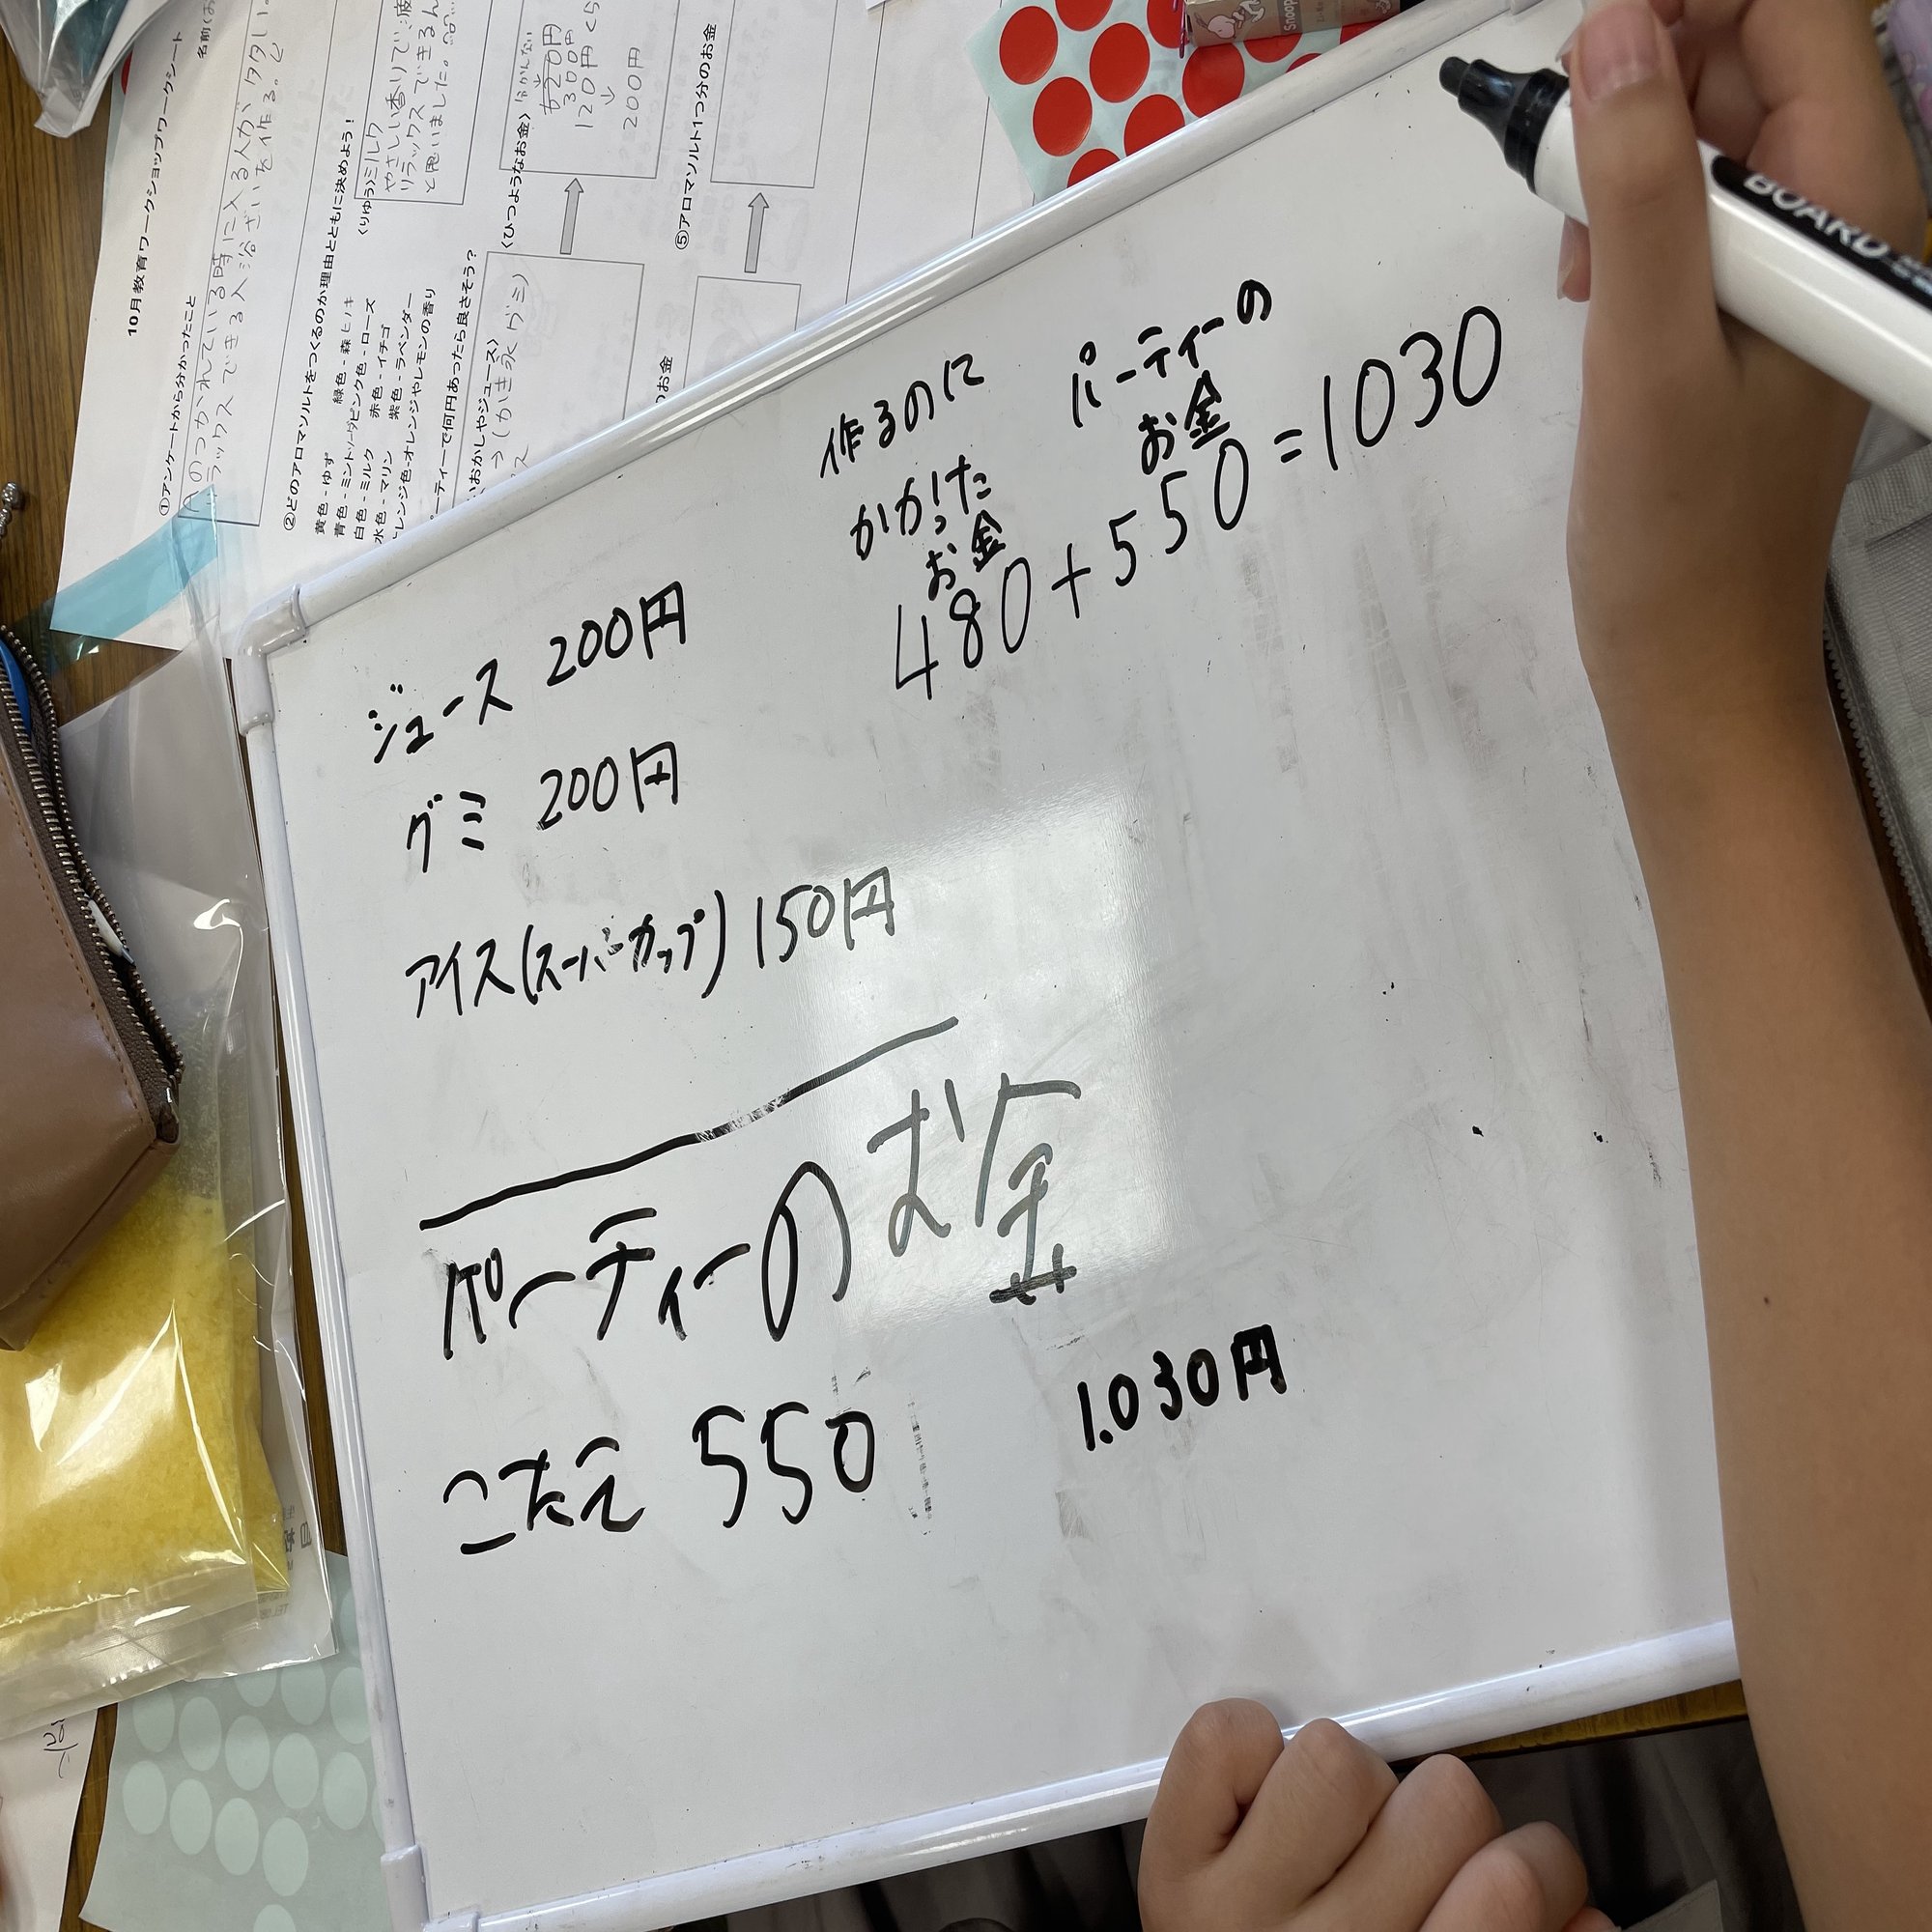 ジュース 200円
グミ 200円
アイス(スーパーカップ) 150円
パーティーのお金
こたえ 550
1.030円
作るのに
かかった
お金
パーティーの
お金
480+550=1030
BOARD
10月教育ワークショップワークシート
①アンケートから分かったこと
②どのアロマソルトをつくるのか理由とともに決めよう!
黄色-ゆず 緑色-森ヒノキ
青色-ミントソーダ/ピンク色-ローズ
白色-ミルク 赤色-イチゴ
水色-マリン 紫色-ラベンダー
レンジ色-オレンジやレモンの香り
〈りゆう〉ミルク
やさしい香りで、疲
リラックスできるん
と思いました。
ーティーで何円あったら良さそう?
おかしやジュース〉
〈ひつようなお金〉
300円
120円くら
↓
200円
→(かき氷グミ)
⑤アロマソルト1つ分のお金
のお金
Snoopy